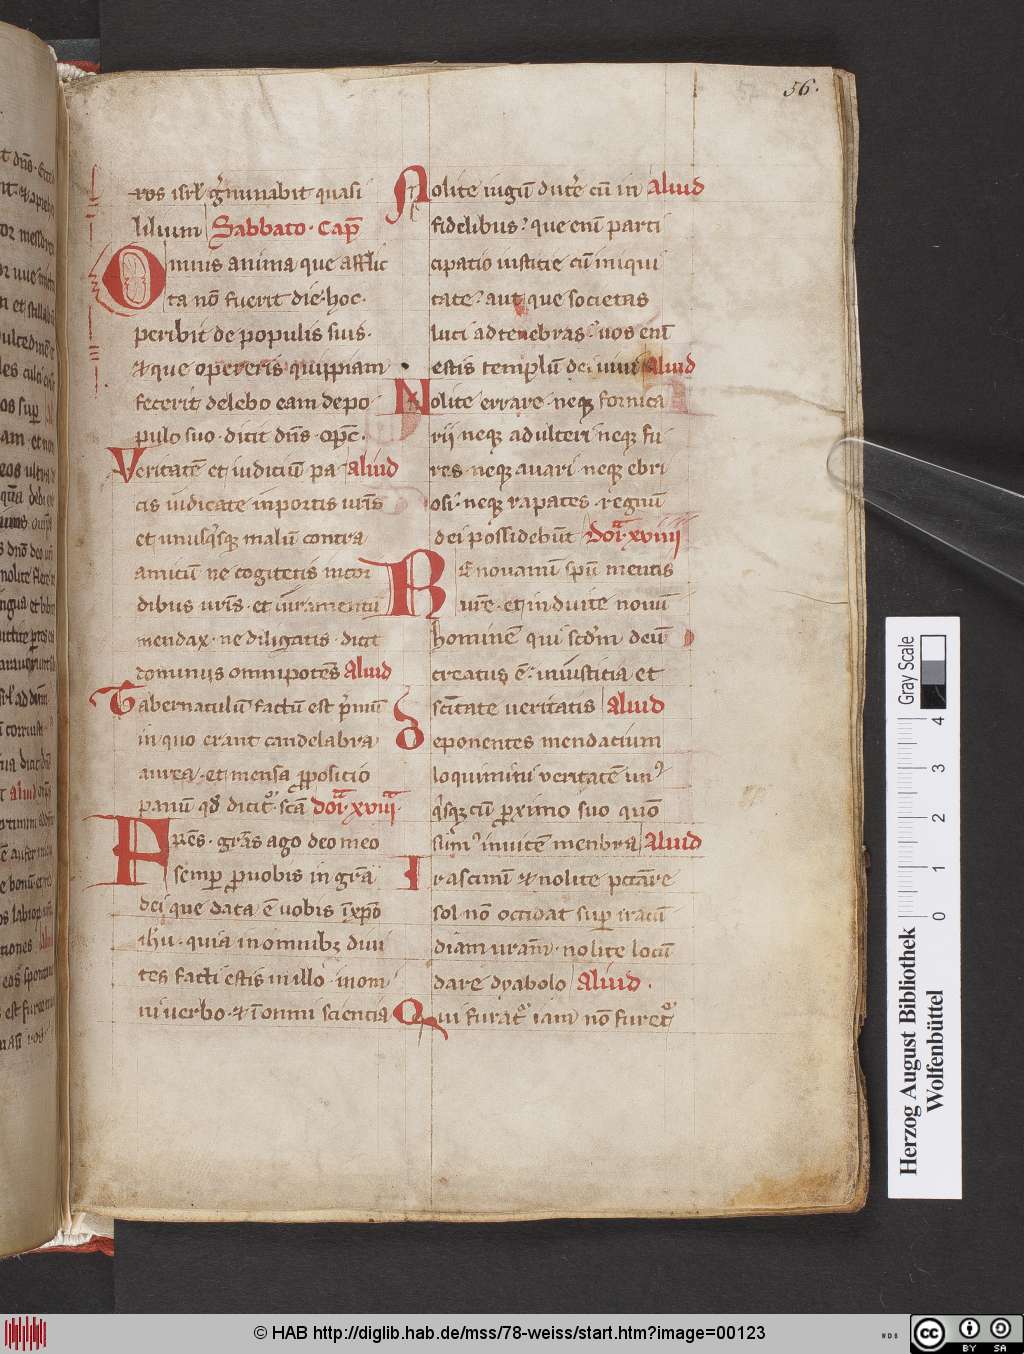 56.
ros isrl' gͥminabit quasi
lilium Sabbato · Cap̅
Omnis anima que afflic
ta no̅ fuerit die · hoc ·
peribit de populis suis ·
& que opereris quippiam
fecerit delebo eam de po
pulo suo · dicit dn̅s · op̅c ·
Veritate̅ et iudiciu̅ pa aliud
cis iudicate in portis vr̅is
et unusqͥsq; malu̅ contra
amicum ne cogitetis in cor
dibus vr̅is · et iuramentu̅
mendax · ne diligatis · dicit
dominus omnipote̅s Aliud
Tabernaculu̅ factu̅ est pͥmu̅
in quo erant candelabra
aurea · et mensa p̲positio
panu̅ qd̅ dicit᷒ · sc̅a doi̅ · xviii ·
Fr̅es · gr̅as ago deo meo
semp̲ p̲ vobis in gr̅a
dei que data e̅ vobis i̅ xp̅o
ih̅u · quia in omnib; divi
tes facti estis in illo · in om
ni verbo · & i̅ omni sciencia
Nolite iugu̅ duce̅ cu̅ in Aliud
fidelibus? que eni̅ parti
cipatio iusticie cu̅ iniqui
tate? aut que societas
luci ad tenebras? vos eni̅
estis templu̅ dei vivi Aliud
Nolite errare · neq; fornica
rij neq; adulteri neq; fu
res · neq; auari neq; ebri
osi · neq; rapaces · regnu̅
dei possidebu̅t doi̅ · xviiij
Renouami̅ sp̅u mentis
vr̅e · et induite nouu̅
homine̅ qui sc̅dm deu̅
creatus e̅ · in iusticia et
sc̅itate veritatis Aliud
Deponentes mendacium
loquimini veritate̅ un᷒
qͥsq; cu̅ p̲ximo suo quo̅
sum᷒ inuice̅ menbra Aliud
Irascimi̅ & nolite pcca̅re
sol no̅ occidat sup̲ iracu̅
diam vra̅m · nolite locu̅
dare dyabolo Aliud ·
Qui furat᷒ iam no̅ furet᷒
Herzog August Bibliothek
Wolfenbüttel
Gray Scale
0 1 2 3 4
© HAB http://diglib.hab.de/mss/78-weiss/start.htm?image=00123
WDB
cc BY SA